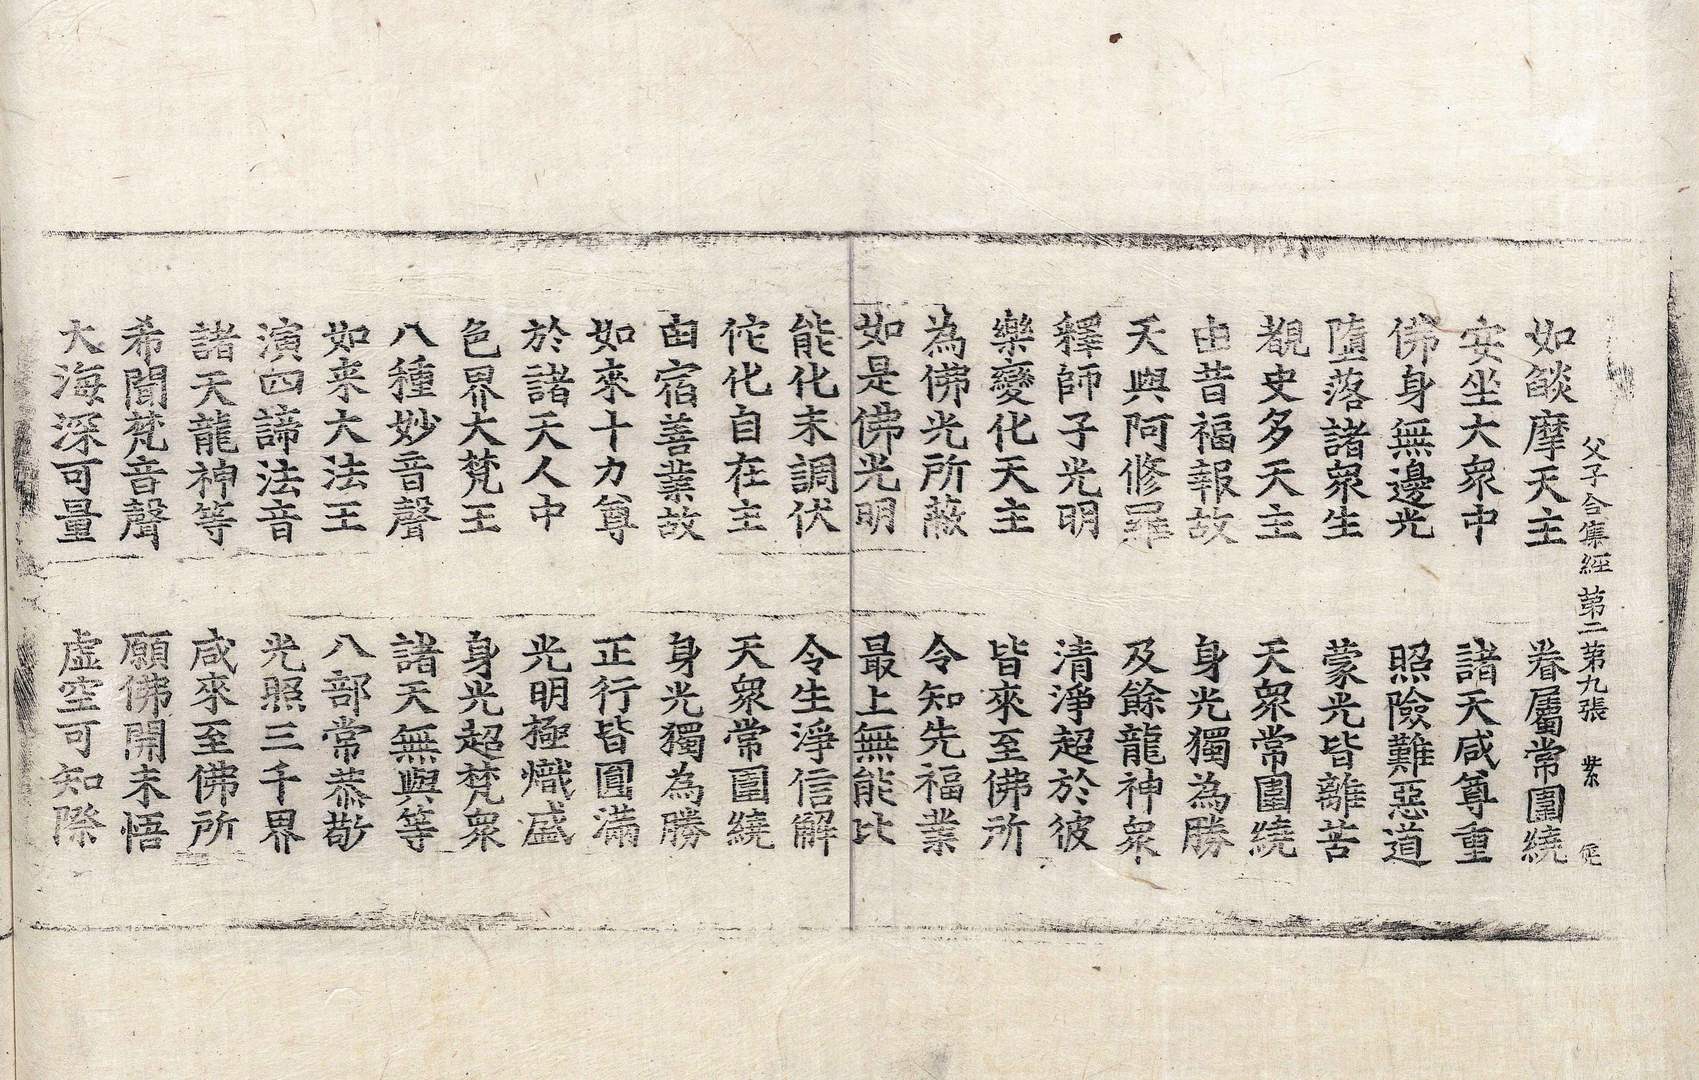 父子合集經 第二第九張 紫
如燄摩天主 眷屬常圍繞
安坐大衆中 諸天咸尊重
佛身無邊光 照險難惡道
墮落諸衆生 蒙光皆離苦
覩史多天主 天衆常圍繞
由昔福報故 身光獨為勝
天與阿修羅 及餘龍神衆
釋師子光明 清淨超於彼
樂變化天主 皆來至佛所
為佛光所蔽 令知先福業
如是佛光明 最上無能比
能化未調伏 令生淨信解
佗化自在主 天衆常圍繞
由宿善業故 身光獨為勝
如來十力尊 正行皆圓滿
於諸天人中 光明極熾盛
色界大梵王 身光超梵衆
八種妙音聲 諸天無與等
如来大法王 八部常恭敬
演四諦法音 光照三千界
諸天龍神等 咸來至佛所
希聞梵音聲 願佛開未悟
大海深可量 虛空可知際